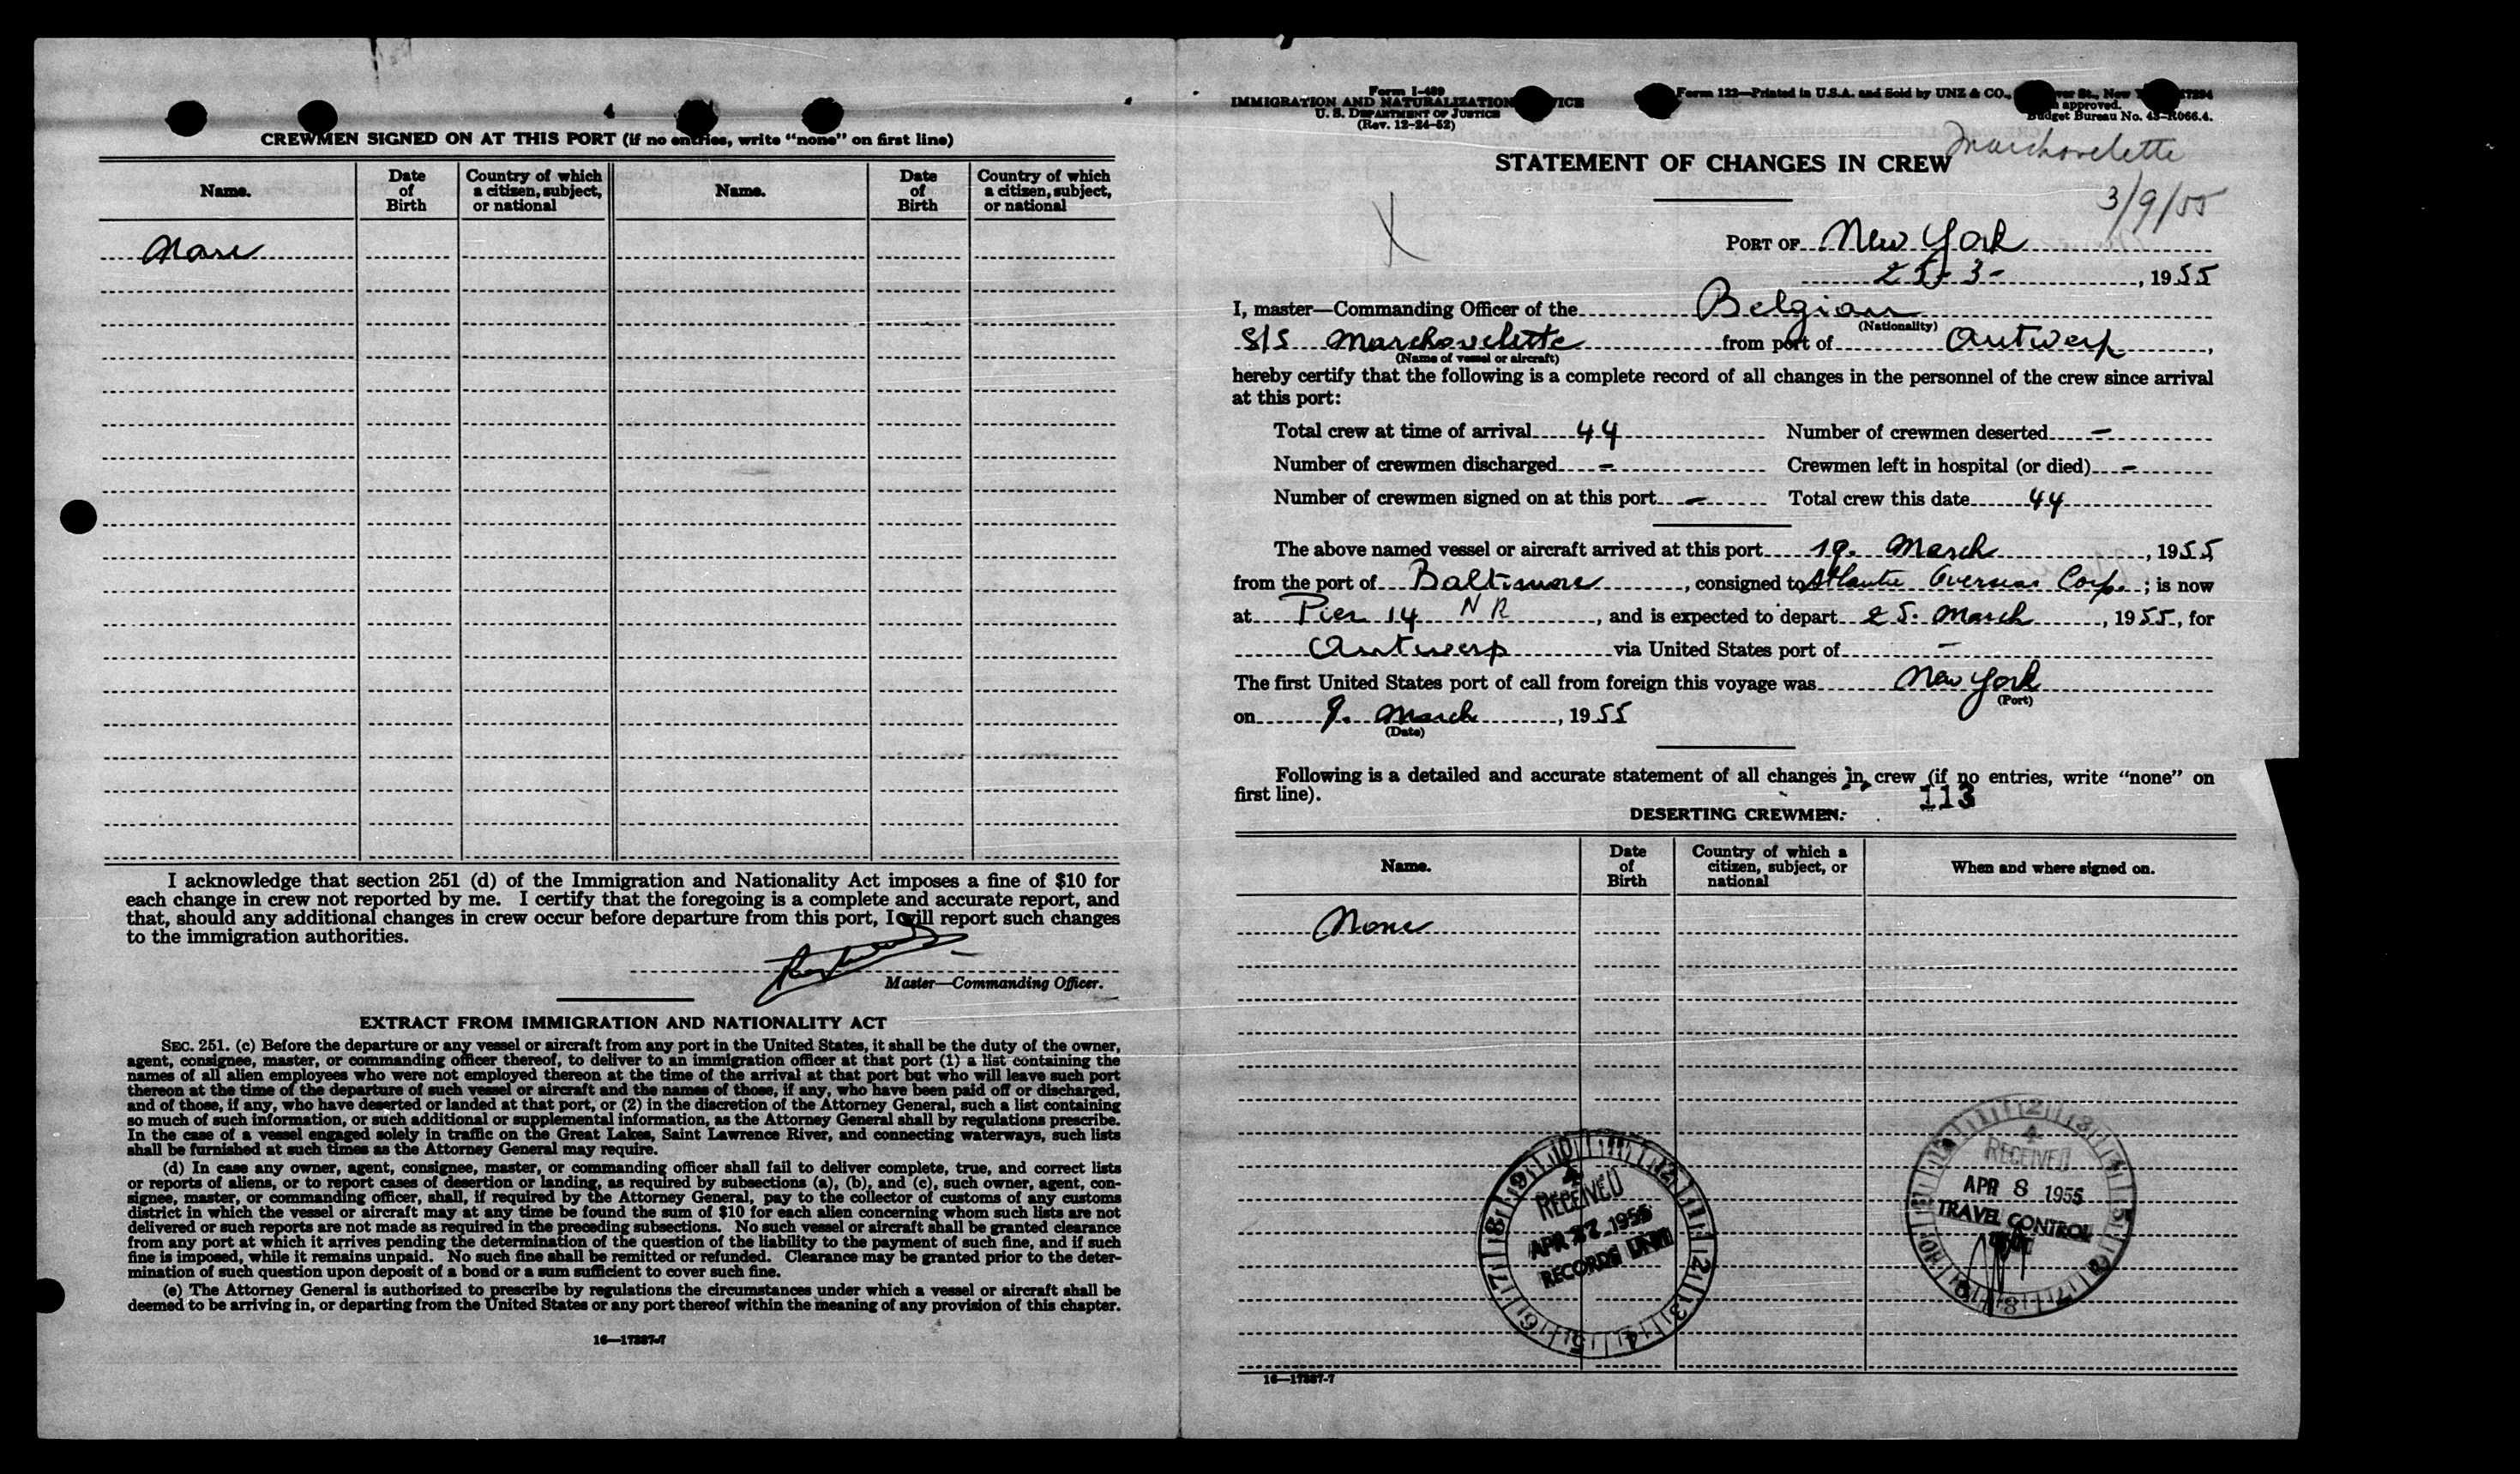 CREWMEN SIGNED ON AT THIS PORT (if no entries, write "none" on first line)
Name.
Date of Birth
Country of which a citizen, subject, or national
Name.
Date of Birth
Country of which a citizen, subject, or national
None
I acknowledge that section 251 (d) of the Immigration and Nationality Act imposes a fine of $10 for
each change in crew not reported by me. I certify that the foregoing is a complete and accurate report, and
that, should any additional changes in crew occur before departure from this port, I will report such changes
to the immigration authorities.
Master—Commanding Officer.
EXTRACT FROM IMMIGRATION AND NATIONALITY ACT
SEC. 251. (c) Before the departure or any vessel or aircraft from any port in the United States, it shall be the duty of the owner,
agent, consignee, master, or commanding officer thereof, to deliver to an immigration officer at that port (1) a list containing the
names of all alien employees who were not employed thereon at the time of the arrival at that port but who will leave such port
thereon at the time of the departure of such vessel or aircraft and the names of those, if any, who have been paid off or discharged,
and of those, if any, who have deserted or landed at that port, or (2) in the discretion of the Attorney General, such a list containing
so much of such information, or such additional or supplemental information, as the Attorney General shall by regulations prescribe.
In the case of a vessel engaged solely in traffic on the Great Lakes, Saint Lawrence River, and connecting waterways, such lists
shall be furnished at such times as the Attorney General may require.
(d) In case any owner, agent, consignee, master, or commanding officer shall fail to deliver complete, true, and correct lists
or reports of aliens, or to report cases of desertion or landing, as required by subsections (a), (b), and (c), such owner, agent, con-
signee, master, or commanding officer, shall, if required by the Attorney General, pay to the collector of customs of any customs
district in which the vessel or aircraft may at any time be found the sum of $10 for each alien concerning whom such lists are not
delivered or such reports are not made as required in the preceding subsections. No such vessel or aircraft shall be granted clearance
from any port at which it arrives pending the determination of the question of the liability to the payment of such fine, and if such
fine is imposed, while it remains unpaid. No such fine shall be remitted or refunded. Clearance may be granted prior to the deter-
mination of such question upon deposit of a bond or a sum sufficient to cover such fine.
(e) The Attorney General is authorized to prescribe by regulations the circumstances under which a vessel or aircraft shall be
deemed to be arriving in, or departing from the United States or any port thereof within the meaning of any provision of this chapter.
16—17387-7
Form I-489
IMMIGRATION AND NATURALIZATION
U. S. DEPARTMENT OF JUSTICE
(Rev. 12-24-52)
Form 122—Printed in U.S.A. and Sold by UNZ & CO., St., New
approved.
Budget Bureau No. 43-R066.4.
Marchovelette
3/9/55
STATEMENT OF CHANGES IN CREW
PORT OF New York
25-3-, 1955
I, master—Commanding Officer of the Belgian
(Nationality)
S/S Marchovelette from port of Antwerp,
(Name of vessel or aircraft)
hereby certify that the following is a complete record of all changes in the personnel of the crew since arrival
at this port:
Total crew at time of arrival 44 Number of crewmen deserted -
Number of crewmen discharged - Crewmen left in hospital (or died) -
Number of crewmen signed on at this port - Total crew this date 44
The above named vessel or aircraft arrived at this port 19. March, 1955
from the port of Baltimore, consigned to Atlantic Overseas Corp.; is now
at Pier 14 NR, and is expected to depart 25. March, 1955, for
Antwerp via United States port of -
The first United States port of call from foreign this voyage was New York
(Port)
on 9. March, 1955
(Date)
Following is a detailed and accurate statement of all changes in crew (if no entries, write "none" on
first line).
113
DESERTING CREWMEN
Name.
Date of Birth
Country of which a citizen, subject, or national
When and where signed on.
None
RECEIVED
APR 27 1955
RECORDS UNIT
RECEIVED
APR 8 1955
TRAVEL CONTROL
16—17387-7